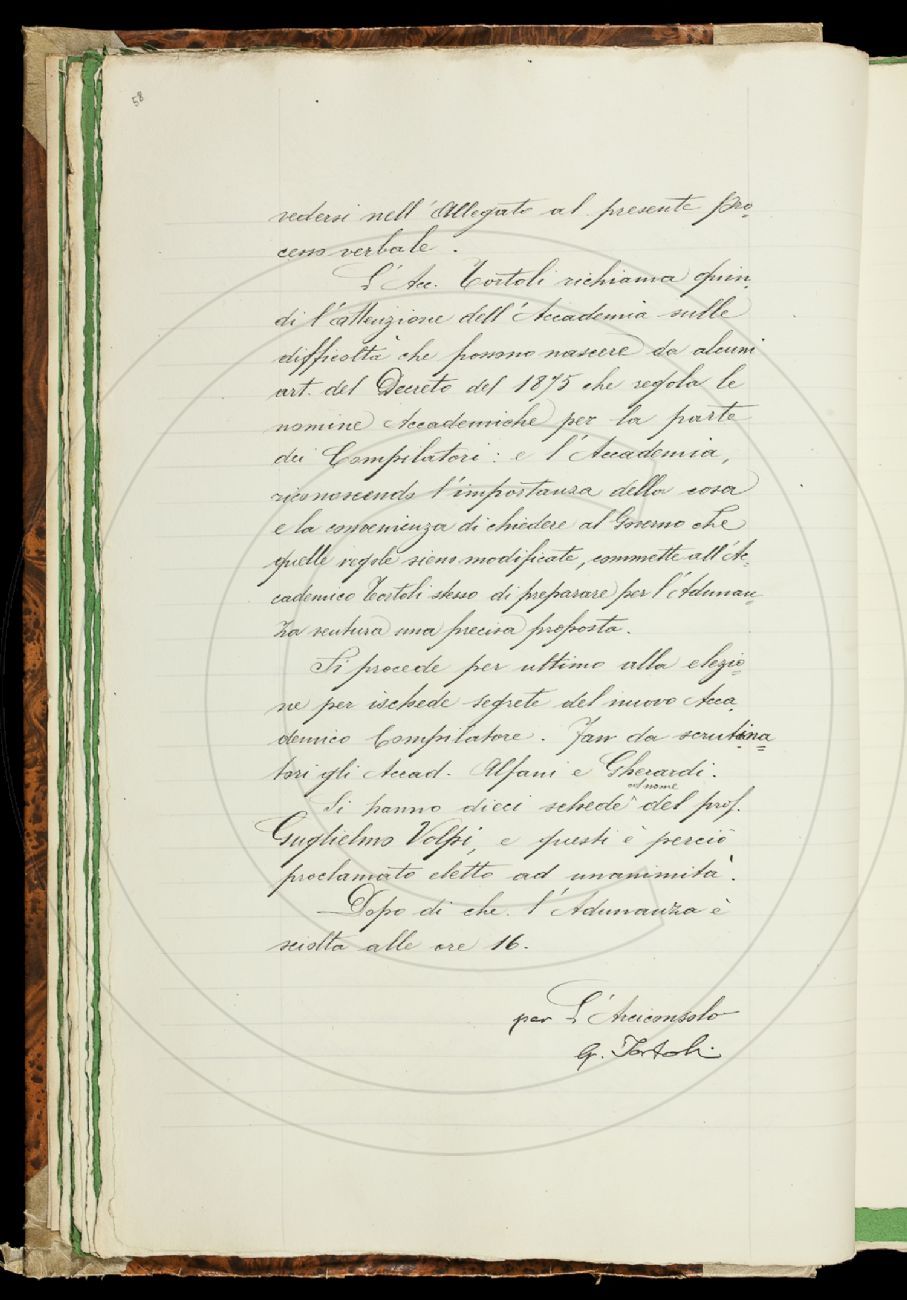 58
vedersi nell'Allegato al presente Pro-
cesso verbale.
L'Acc. Tortoli richiama quin-
di l'attenzione dell'Accademia sulle
difficoltà che possono nascere da alcuni
art. del Decreto del 1875 che regola le
nomine Accademiche per la parte
dei Compilatori: e l'Accademia,
riconoscendo l'importanza della cosa
e la convenienza di chiedere al Governo che
quelle regole sieno modificate, commette all'Ac-
cademico Tortoli stesso di preparare per l'Adunan-
za ventura una precisa proposta.
Si procede per ultimo alla elezio-
ne per ischede segrete del nuovo Acca-
demico Compilatore. Fan da scrutina-
tori gli Accad. Alfani e Gherardi.
Si hanno dieci schede col nome del prof.
Guglielmo Volpi, e questi è perciò
proclamato eletto ad unanimità.
Dopo di che l'Adunanza è
sciolta alle ore 16.
per L'Arciconsolo
G. Tortoli